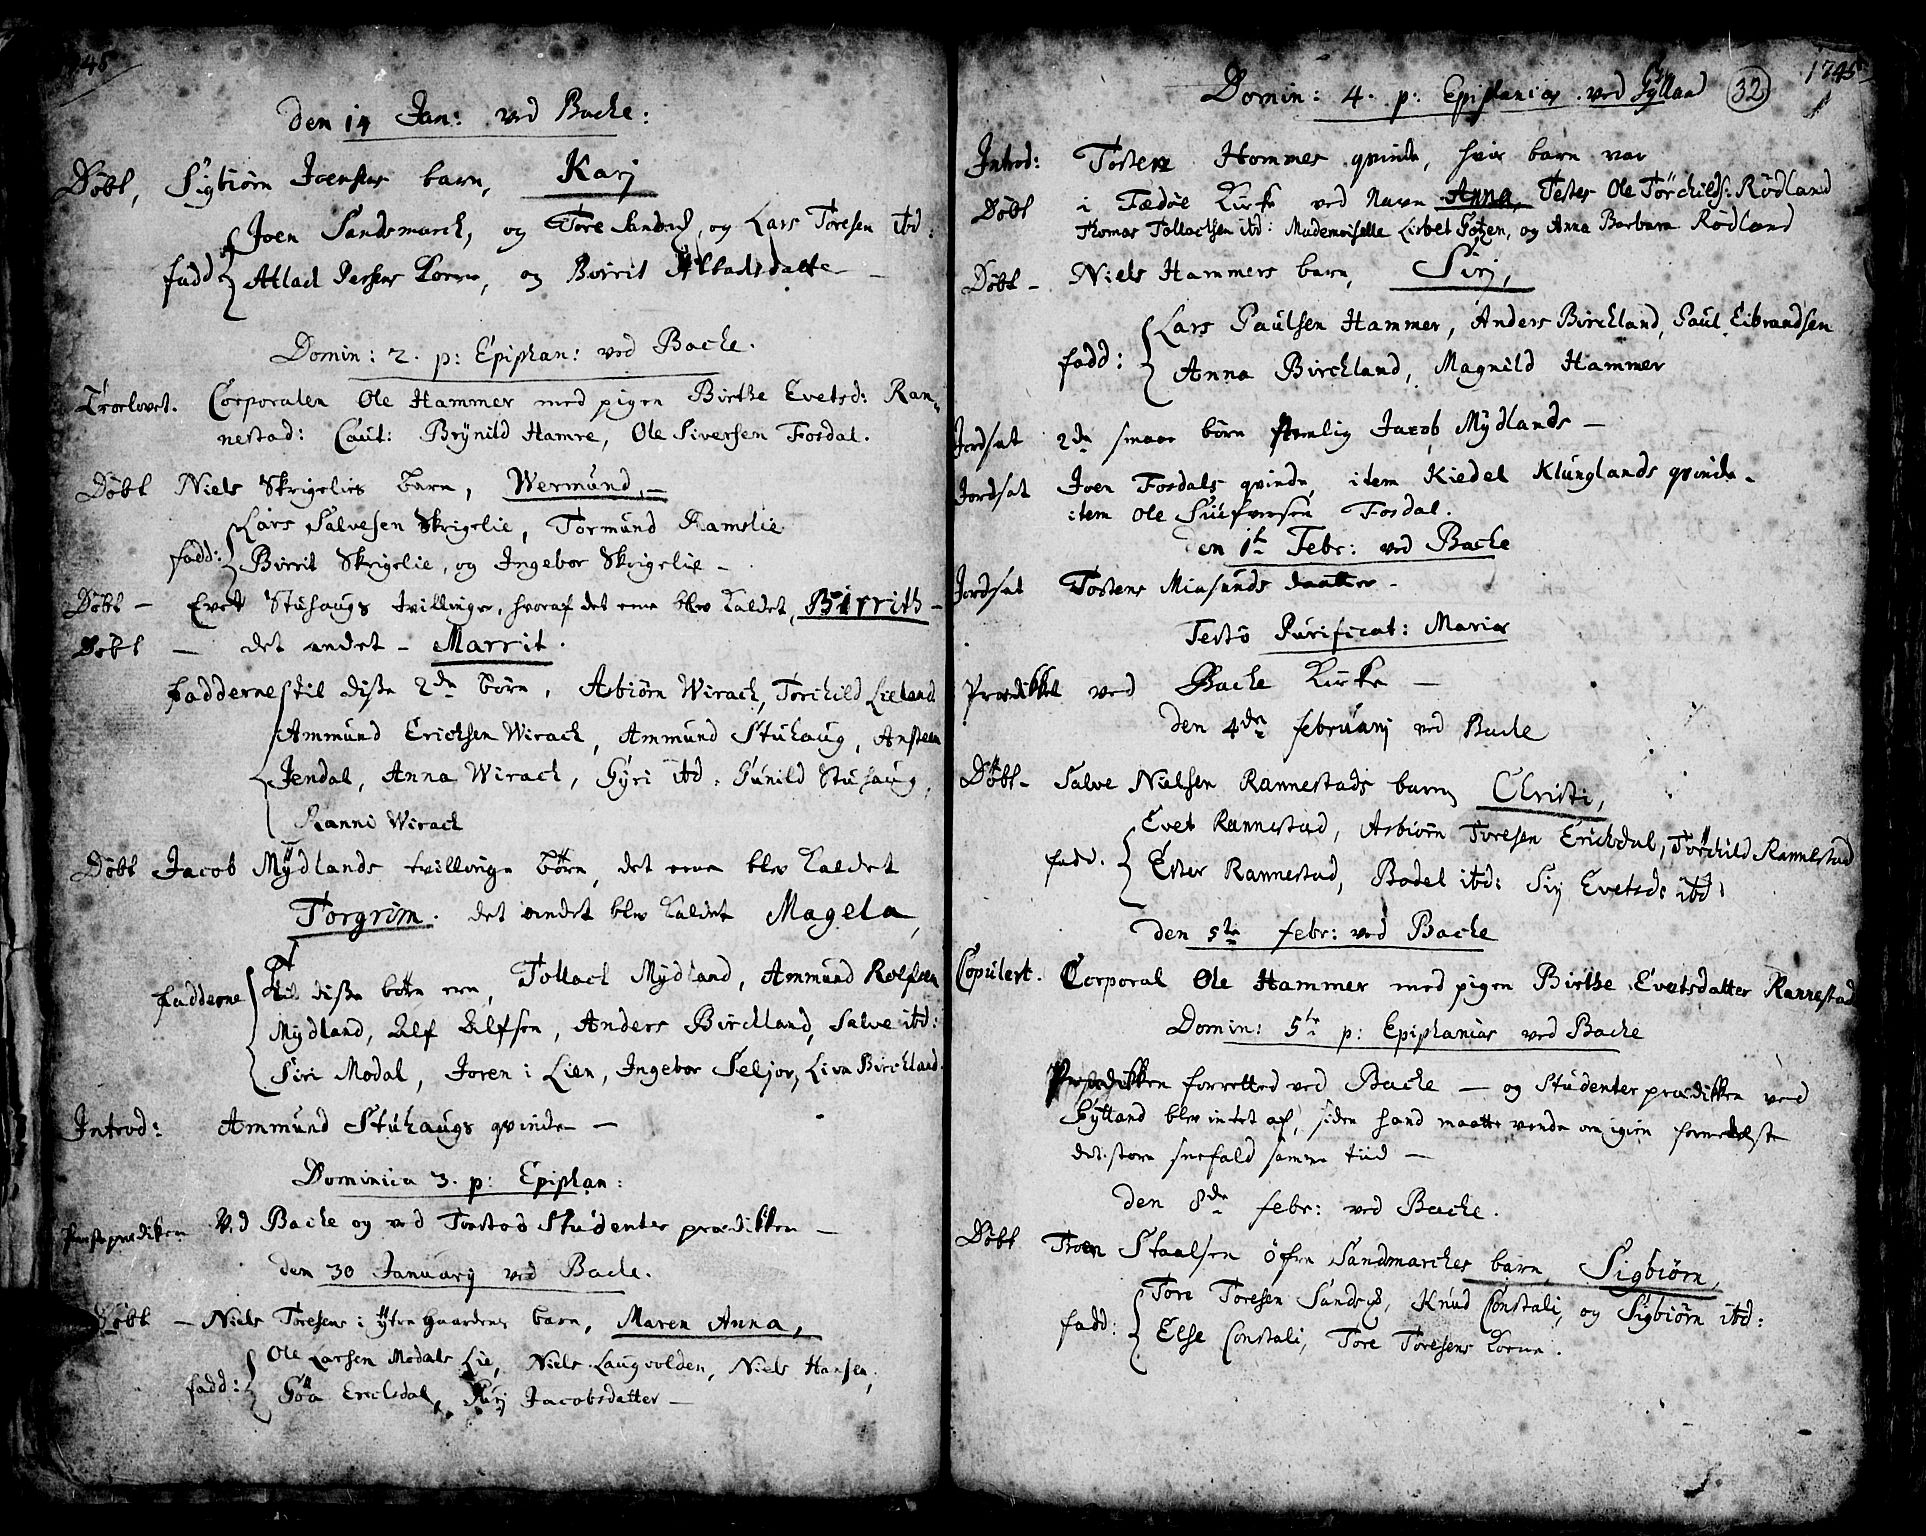 1745
den 14 Jan: ved Bache:
Döbt, Sigbiörn Joensens barn, Karj
Joen Sandsmarck, og Tore Sandsd, og Lars Toresen itd:
fadd: Atlach Persens Kone, og Birrit Atlachsdatter
Domin: 2. p: Epiphan: ved Bache.
Troelovet. Corporalen Ole Hammer med pigen Birthe Evetsd: Ran-
nestad: Caut: Brÿnild Hamre, Ole Siversen Fosdal.
Döbt Niels Skrigelies barn, Wermund,
Lars Salvesen Skrigelie, Tormund Ramslie
fadd: Birrit Skrigelie, og Ingebor Skrigelie
Döbt - Evet Stuhaugs tvillinger, hvoraf det ene blev kaldet, Birrith
Döbt - det andet - Marrit.
Faddernes til disse 2de börn, Asbiörn Wirach, Torchild Lieland
Ammund Erichsen Wirach, Ammund Stuhaug, Ansteen
Jendal, Anna Wirach, Gÿri itd: Gunild Stuhaug,
Ranni Wirach
Döbt Jacob Mÿdlands tvillinge börn, det eene blev kaldet
Torgrim. det andet blev kaldet Magela,
Fadderne til disse börn ere, Tollach Mÿdland, Ammund Rolfsen
Mÿdland, Alf Alfsen, Anders Birchland, Salve itd:
Siri Modal, Joren i Lien, Ingebor Seljor, Liva Birchland.
Introd: Ammund Stuhaugs qvinde -
Dominica 3. p: Epiphan:
prædiken Ved Bache og ved Tonstad Studenter prædikken -
den 30 Januarij ved Bache.
Döbt - Niels Toresens i ÿtre Gaardens barn, Maren Anna,
Ole Larsen Modals Lie, Niels Laugvolden, Niels Hansen,
fadd: Göa Erichsdal, Siri Jacobsdatter -
Domin: 4. p: Epiphanias ved Gylland 32 1745
Introd: Tosten Hommes qvinde, hvis barn var
Döbt i Fædöe Kirke ved Navn Anna, Testes Ole Törchilds: Rödland
Thomas Tollachsen itd: Mademoiselle Lisbet Götzen, og Anna Barbara Rödland
Döbt - Niels Hammers barn, Sirj,
Lars Paulsen Hammer, Anders Birchland, Paul Eibrandsen
fadd: Anna Birchland, Magnild Hammer
Jordsat 2de smaae börn nemlig Jacob Mÿdlands -
Jordsat Joen Fosdals qvinde, item Kiedel Klunglands qvinde.
item Ole Siufversen Fosdal.
den 1te Febr: ved Bache
Jordsat Tostens Miusunds daatter -
Festo Purificat: Mariæ
Prædikket ved Bache Kirke -
den 4de februarij ved Bache
Döbt - Salve Nielsen Rannestads barn Christi,
Evet Rannestad, Asbiörn Toresen Erichsdal, Törchild Rannestad
fadd. Ester Rannestad, Bodel itd: Sirj Evetsd: itd:
den 5te febr: ved Bache
Copulert. Corporal Ole Hammer med pigen Birthe Evetsdatter Rannestad
Domin: 5te p: Epiphanias ved Bache
Prædikken forretted ved Bache - og Studenter prædikken ved
Gÿlland blev intet af, siden hand maatte vende om igien formedelst
det store sneefald samme tiid -
den 8de febr: ved Bache.
Döbt Tron Staalsen öfre Sandsmarckes barn, Sigbiörn,
Tore Toresen Sands, Knud Constali, og Sigbiörn itd:
fadd: Else Constali, Tore Toresens Kone.